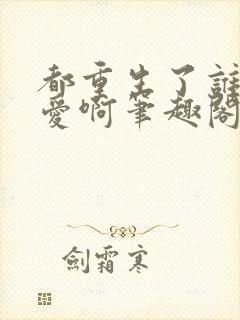 都重生了誰
愛啊筆趣閣
劍霜寒